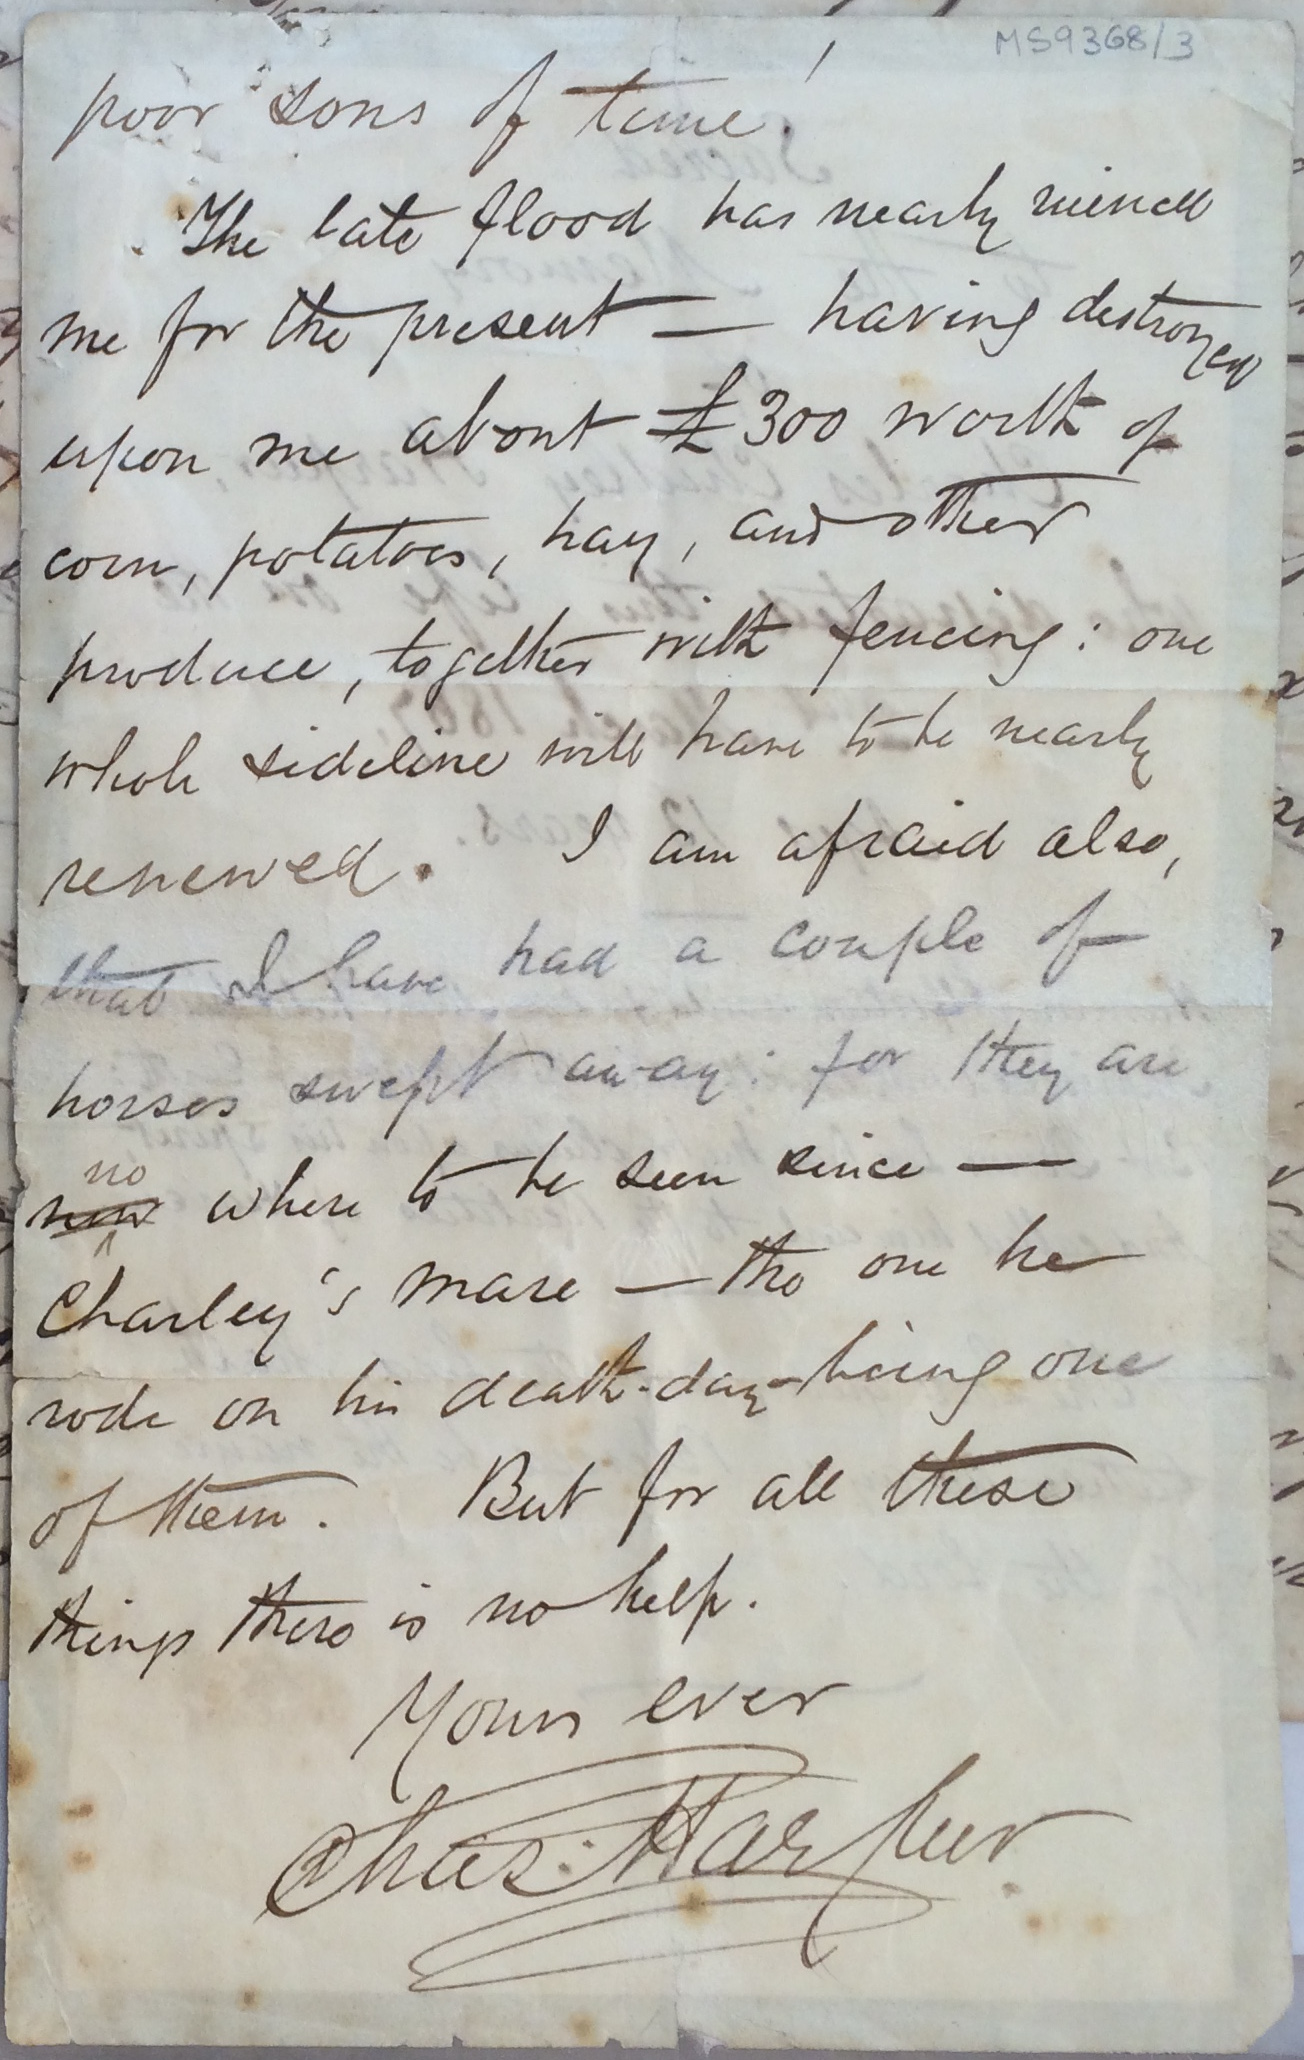 MS9368/3
poor sons of time!
The late flood has nearly ruined
me for the present — having destroyed
upon me about £300 worth of
corn, potatoes, hay, and other
produce, together with fencing: one
whole sideline will have to be nearly
renewed. I am afraid also,
that I have had a couple of
horses swept away: for they are
no
now where to be seen since —
Charley's mare — the one he
rode on his death-day—being one
of them. But for all these
things there is no help.
Yours ever
Chas: Harpur